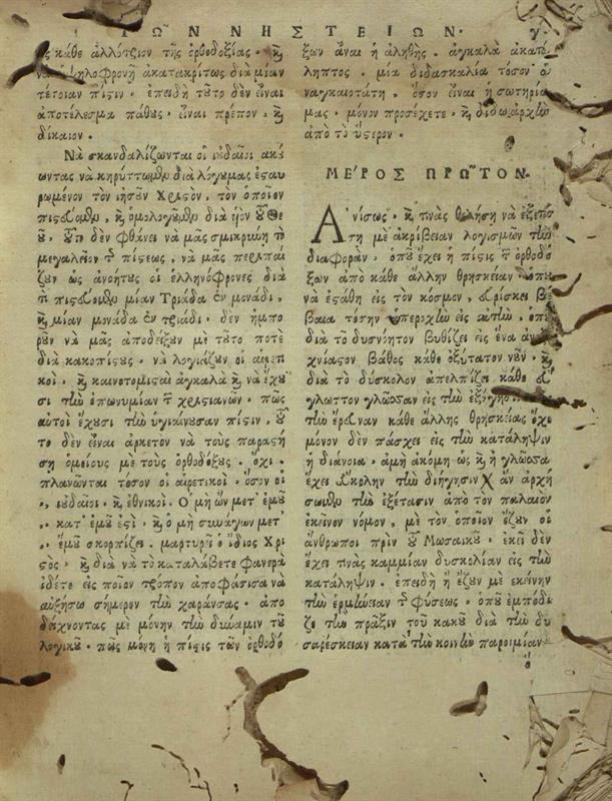 ΤΩΝ ΝΗΣΤΕΙΩΝ.
κάθε ἀλλότριον τῆς ὀρθοδοξίας. καὶ
ὑψηλοφρονῇ ἀκατακρίτως διὰ μίαν
τέτοιαν πίστιν. ἐπειδὴ τοῦτο δὲν εἶναι
ἀποτέλεσμα πάθους. εἶναι πρέπον. καὶ
δίκαιον.
Νὰ σκανδαλίζωνται οἱ ἰουδαῖοι ἀκού
ωντας νὰ κηρύττωμεν διὰ λόγου μας ἐσταυ
ρωμένον τὸν ἰησοῦν Χριστὸν, τὸν ὁποῖον
πιστεύομεν, καὶ ὁμολογοῦμεν διὰ ὑιὸν τοῦ Θε
οῦ. τοῦτο δὲν φθάνει νὰ μᾶς σμικρύνῃ τὸ
μεγαλεῖον τῆς πίστεως, νὰ μᾶς περιπαί
ζουν ὡς ἀνοήτους οἱ ἑλληνόφρονες διὰ
τὶ πιστεύομεν μίαν Τριάδα ἐν μονάδι.
καὶ μίαν μονάδα ἐν τριάδι. δὲν ἠμπο
ροῦν νὰ μᾶς ἀποδείξουν μὲ τοῦτο ποτὲ
διὰ κακοπίστους. νὰ λογιάζουν οἱ αἱρετι
κοὶ. καὶ καινοτομισταὶ ἀγκαλὰ καὶ νὰ ἔχου
σι τὴν ἐπωνυμίαν τῶν χριστιανῶν. πῶς
αὐτοὶ ἔχουσι τὴν ὑγιαίνουσαν πίστιν. τοῦ
το δὲν εἶναι ἀρκετὸν νὰ τοὺς παραστή
σῃ ὁμοίους μὲ τοὺς ὀρθοδόξους. ὄχι.
πλανῶνται τόσον οἱ αἱρετικοὶ. ὅσον οἱ
,, ἰουδαῖοι. καὶ ἐθνικοὶ. Ὁ μὴ ὢν μετ' ἐμοῦ
,, κατ' ἐμοῦ ἐστὶ. καὶ ὁ μὴ συνάγων μετ'
,, ἐμοῦ σκορπίζει. μαρτυρεῖ ὁ ἴδιος Χρι
στὸς. καὶ διὰ νὰ τὸ καταλάβετε φανερὰ
ἰδέτε εἰς ποῖον τρόπον ἀποφάσισα νὰ
αὐξήσω σήμερον τὴν χαράνσας. ἀπο
δείχνοντας μὲ μόνην τὴν δύναμιν τοῦ
λογικοῦ. πῶς μόνη ἡ πίστις τῶν ὀρθοδό
ξων εἶναι ἡ ἀληθὴς. ἀγκαλὰ ἀκατά
ληπτος. μία διδασκαλία τόσον ἀ
ναγκαιοτάτη. ὅσον εἶναι ἡ σωτηρία
μας. μόνον προσέχετε. καὶ δίδω ἀρχὴν
ἀπὸ τὸ ὕστερον.
ΜΕΡΟΣ ΠΡΩΤΟΝ.
Ἀνίσως. καὶ τινὰς θελήσῃ νὰ ἐξετά
σῃ μὲ ἀκρίβειαν λογισμῶν τὴν
διαφορὰν. ὁποῦ ἔχει ἡ πίστις τῶν ὀρθοδό
ξων ἀπὸ κάθε ἄλλην θρησκείαν. ὁποῦ
νὰ ἐστάθη εἰς τὸν κόσμον, εὑρίσκει βέ
βαια τόσην ὑπεροχὴν εἰς αὐτὴν. ὁποῦ
διὰ τὸ δυσνόητον βυθίζει εἰς ἕνα ἀνε
χνίαστον βάθος κάθε ὀξύτατον νοῦν. καὶ
διὰ τὸ δύσκολον ἀπελπίζει κάθε εὔ
γλωττον γλῶσσαν εἰς τὴν ἐξήγησιν.
τὴν ἔρευναν κάθε ἄλλης θρησκείας ὄχι
μόνον δὲν πάσχει εἰς τὴν κατάληψιν
ἡ διάνοια. ἀμὴ ἀκόμη ὡς καὶ ἡ γλῶσσα
ἔχει εὔκολην τὴν διήγησιν Χ ἂν ἀρχή
σωμεν τὴν ἐξέτασιν ἀπὸ τὸν παλαιὸν
ἐκεῖνον νόμον, μὲ τὸν ὁποῖον ἔζουν οἱ
ἄνθρωποι πρὶν τοῦ Μωσαικοῦ. ἐκεῖ δὲν
ἔχει τινὰς καμμίαν δυσκολίαν εἰς τὴν
κατάληψιν. ἐπειδὴ ἢ ἔζουν μὲ ἐκείνην
τὴν ἑρμήνειαν τῆς φύσεως. ὁποῦ ἐμποδί
ζει τὴν πρᾶξιν τοῦ κακοῦ διὰ τὴν δυ
σαρέσκειαν κατὰ τὴν κοινὴν παροιμίαν.